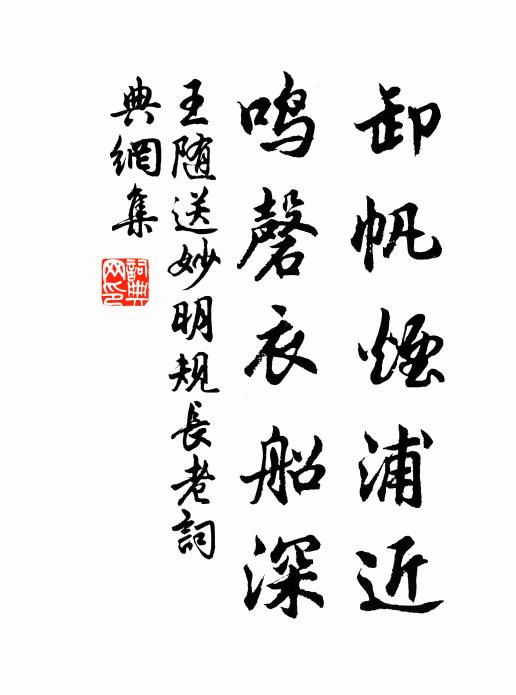 卸帆煙浦近
鳴磬衣船深
王随送妙明規長老詞
典網集
詞典網印